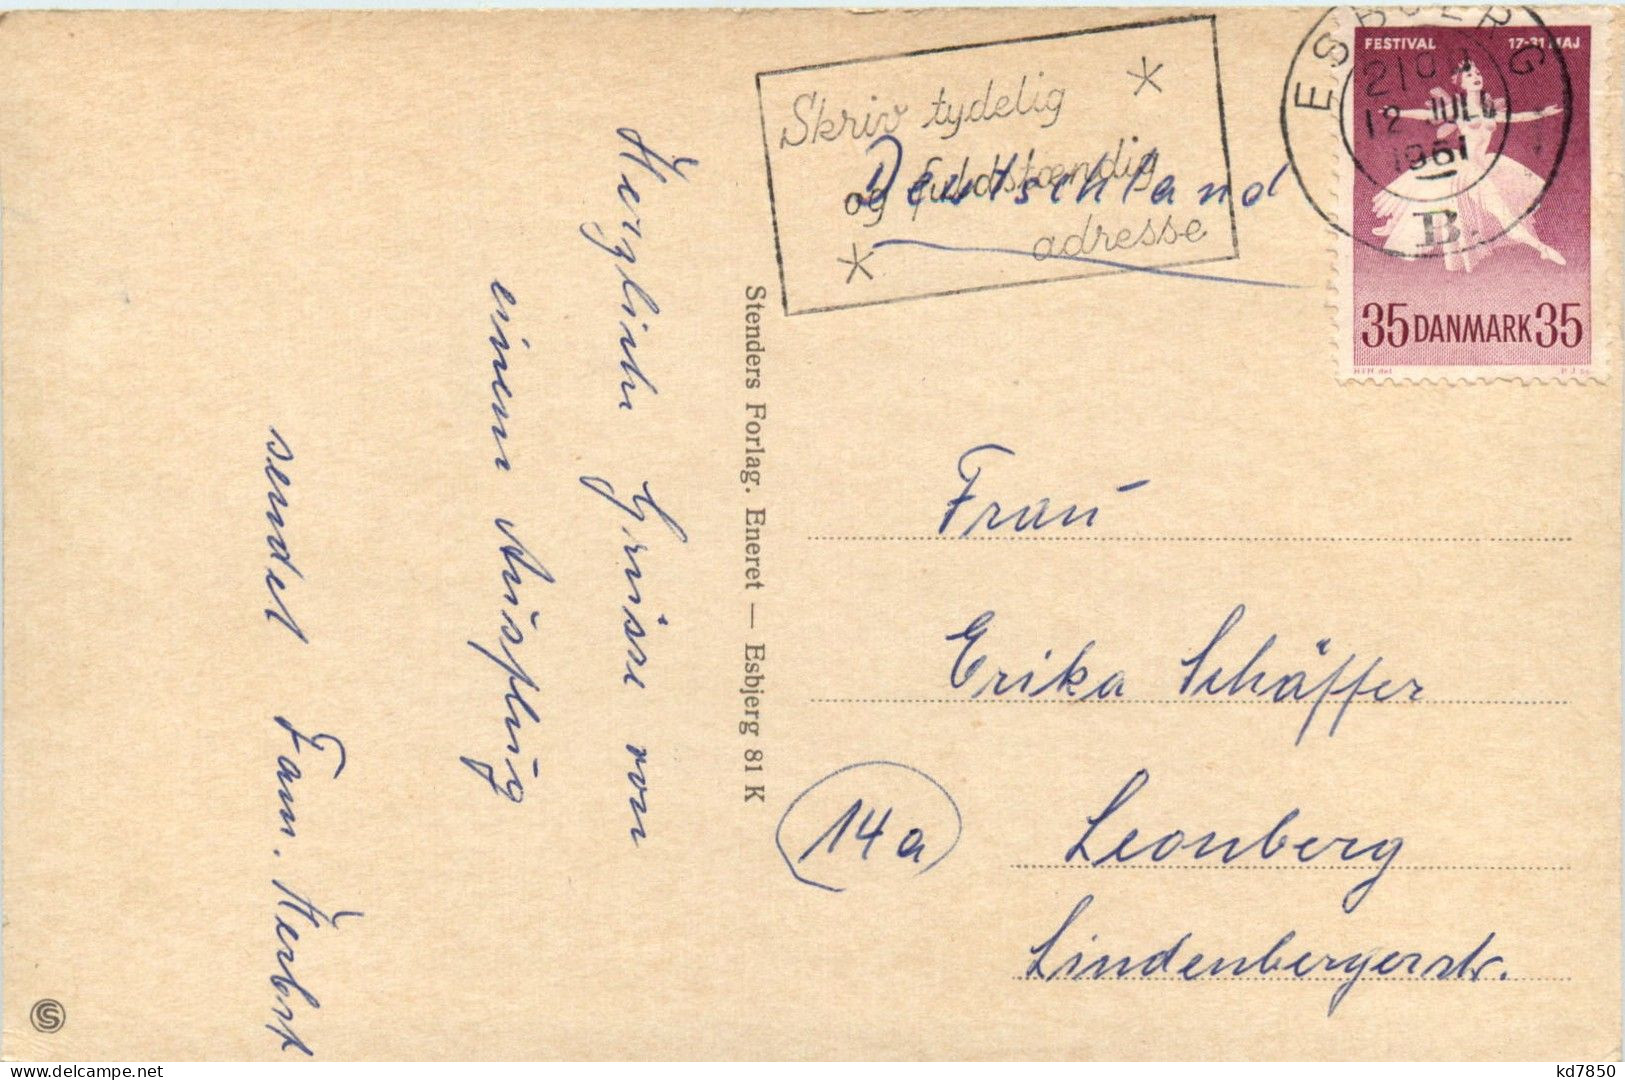 Skriv tydelig
og fuldstændig
adresse
ESBJERG
12 JULI
1961
B.
FESTIVAL 17-31 MAJ
35 DANMARK 35
Deutschland
Herzliche Grüsse von
einem Ausflug
sendet Fam. Herbst
Stenders Forlag. Eneret — Esbjerg 81 K
Frau
Erika Schäffer
14a
Leonberg
Lindenbergerstr.
kd7850